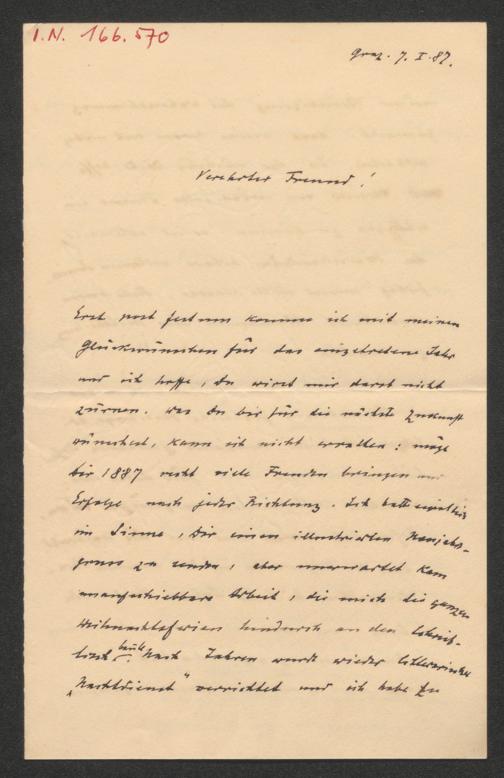 I.N. 166.570
Graz. 7. I. 87.
Verehrter Freund!
Erst post festum komme ich mit meinen
Glückwünschen für das eingetretene Jahr
und ich hoffe, Du wirst mir darob nicht
zürnen. Was Du dir für die nächste Zukunft
wünschest, kann ich nicht errathen: möge
dir 1887 recht viele Freuden bringen und
Erfolge nach jeder Richtung. Ich hatte
im Sinne, Dir einen illustrierten Neujahrs-
gruss zu senden, aber unerwartet kam
unaufschiebbare Arbeit, die mich die ganzen
Weihnachtsferien hindurch an den Schreib-
tisch bannte. Nach Jahren wurde wieder litterarischer
"Nachtdienst" verrichtet und ich habe zu